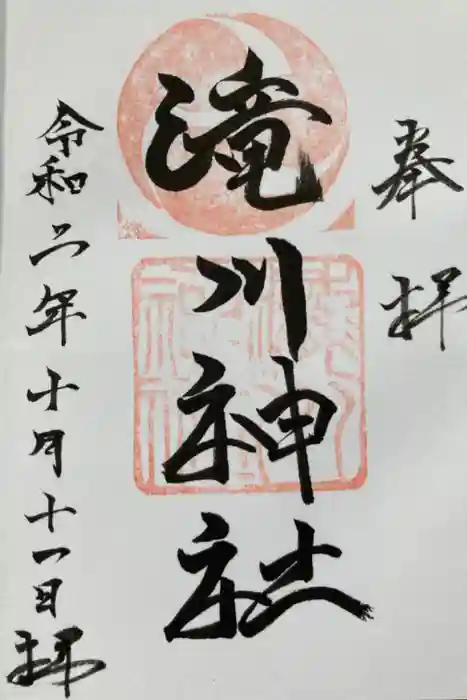 奉拝
滝川神社
令和二年十月十一日拝